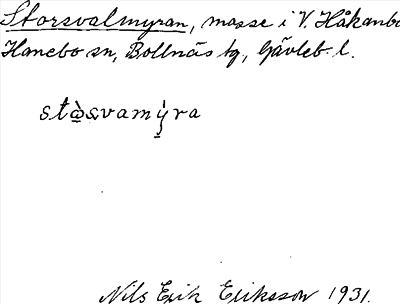 Storsvalmyran, mosse i V. Håkanbo
Hanebo sn, Bollnäs tg, Gävleb. l.
Nils Erik Eriksson 1931.